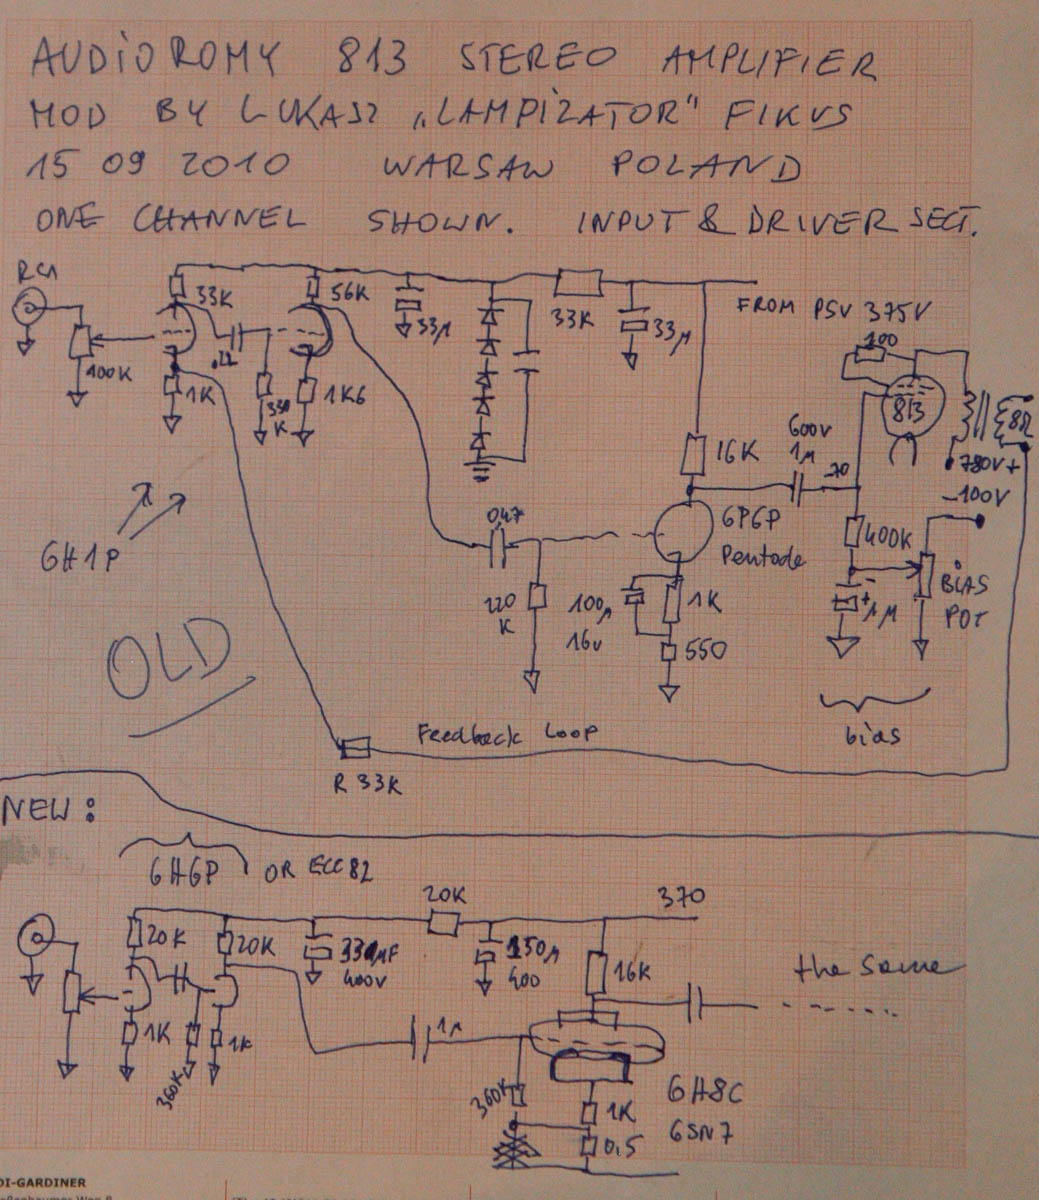 AUDiO ROMY 813 STEREO AMPLIFIER
MOD BY LUKASZ „LAMPIZATOR" FIKUS
15 09 2010 WARSAW POLAND
ONE CHANNEL SHOWN. INPUT & DRIVER SECT.
RCA
33K
56K
33µ
33K
33µ
FROM PSU 375V
100
100K
.22
1K
330 K
1K6
813
8Ω
600V
1µ
-70
780V+
-100V
16K
6H1P
047
6P6P
Pentode
400K
BiAS
POT
220
K
100µ
16v
1K
+ 1M
550
OLD
bias
Feedback Loop
R 33K
NEW:
6H6P OR ECC82
20K
370
20K
20K
330µF
400V
150µ
400
16K
the same
1K
1K
1µ
360K
360K
1K
6H8C
6SN7
0,5
DI-GARDINER